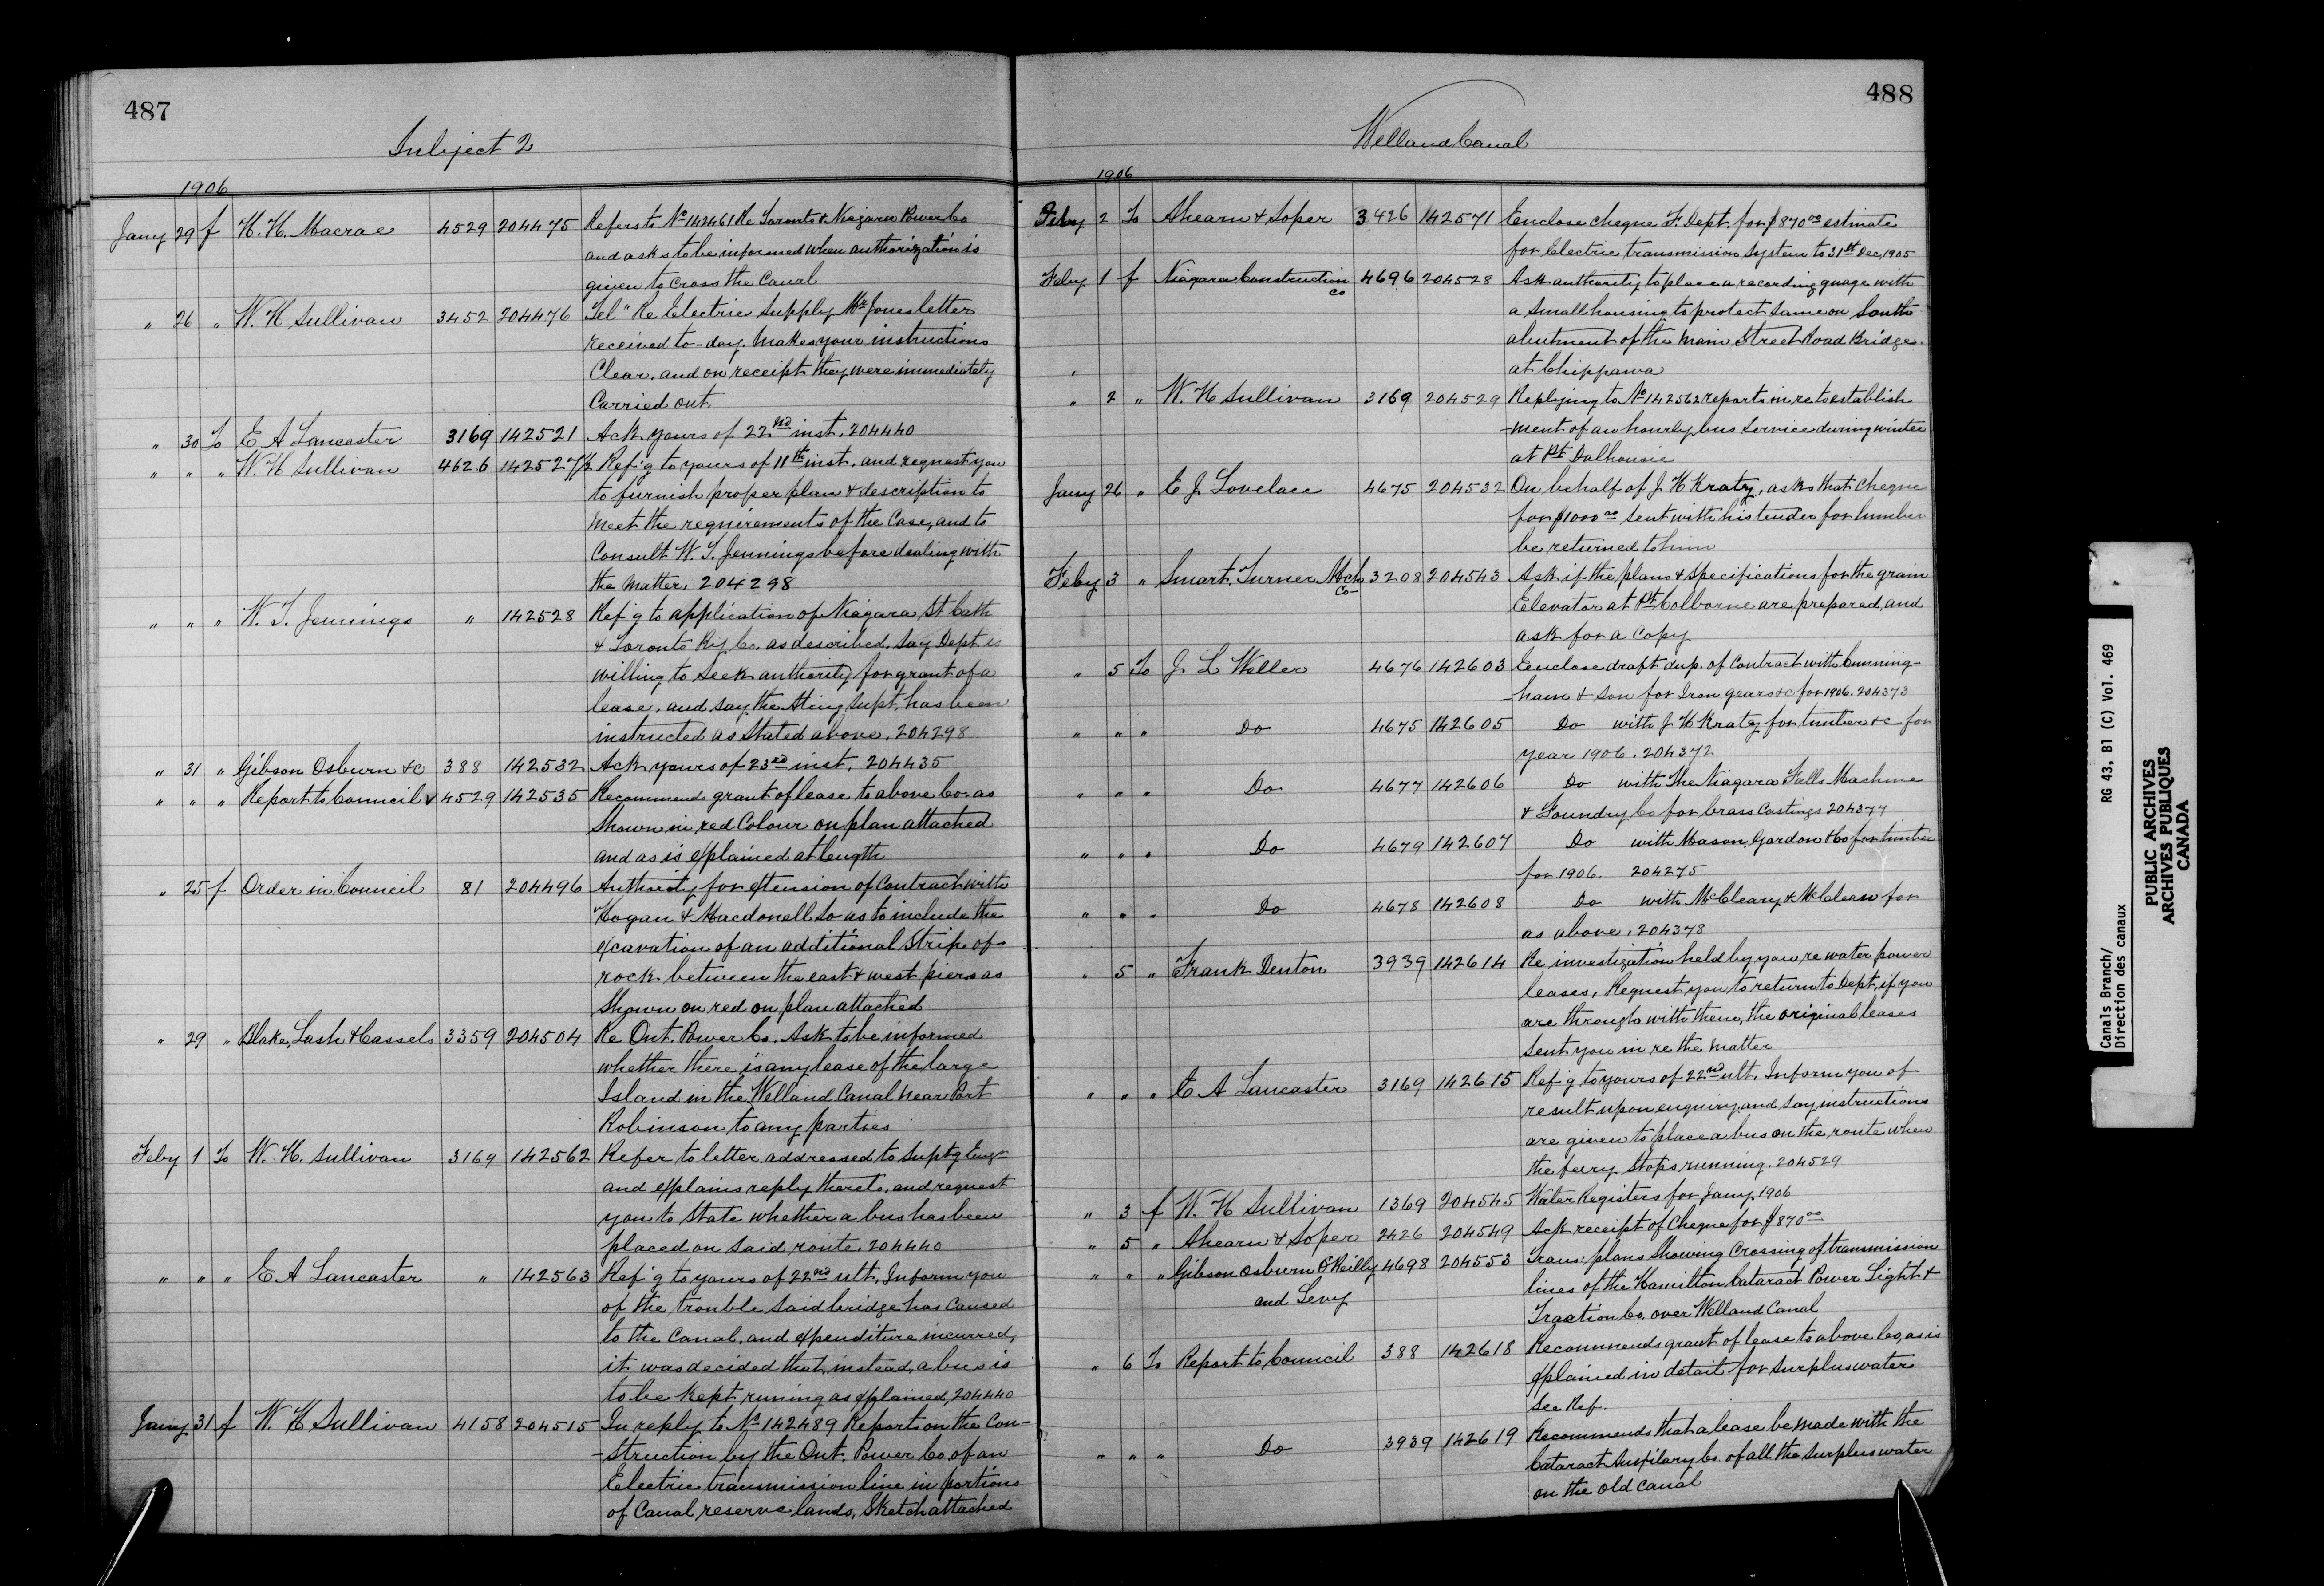 487
Subject 2
1906
Jany 29 f H. H. Macrae 4529 204475 Refers to No 142461 Re Toronto & Niagara Power Co
and asks to be informed when authorization is
given to cross the Canal
" 26 " W. H Sullivan 3452 204476 Tel " Re Electric Supply Mr Jones letter
received to-day. Makes your instructions
Clear, and on receipt they were immediately
Carried out
" 30 To E A Lancaster 3169 142521 Ack yours of 22nd inst. 204440
" " " W. H Sullivan 4626 142527½ Ref'g to yours of 11th inst. and request you
to furnish proper plan & description to
meet the requirements of the Case, and to
Consult W. T. Jennings before dealing with
the matter, 204298
" " " W. T. Jennings " 142528 Ref'g to application of Niagara St Cath
& Toronto Ry Co. as described. Say Dept. is
willing to seek authority for grant of a
lease, and say the Ating Supt. has been
instructed as stated above. 204298
" 31 " Gibson Osburn &c 388 142532 Ack yours of 23rd inst. 204435
" " " Report to Council 4529 142535 Recommends grant of lease to above Co. as
Shown in red Colour on plan attached
and as is explained at length
" 25 f Order in Council 81 204496 Authority for extension of Contract with
Hogan & Macdonell so as to include the
excavation of an additional Strip of
rock between the east & west piers as
Shown on red on plan attached
" 29 " Blake, Lash & Cassels 3359 204504 Re Ont. Power Co. Ask to be informed
whether there is any lease of the large
Island in the Welland Canal near Port
Robinson to any parties
Feby 1 To W. H. Sullivan 3169 142562 Refer to letter addressed to Suptg Engr
and explains reply thereto, and request
you to State whether a bus has been
placed on said route. 204440
" " " E A Lancaster " 142563 Ref'g to yours of 22nd ult. Inform you
of the trouble said bridge has caused
to the Canal, and expenditure incurred,
it was decided that, instead, a bus is
to be kept runing as explained, 204440
Jany 31 f W. H Sullivan 4158 204515 In reply to No 142489 Report on the Con-
-struction by the Ont. Power Co. of an
Electric transmission line in portions
of Canal reserve lands, Sketch attached
488
Welland Canal
1906
Feby 2 To Ahearn & Soper 3426 142571 Enclose cheque F. Dept. for $870 00 estimate
for Electric transmission system to 31st Dec, 1905
Feby 1 f Niagara Construction Co 4696 204528 Ask authority to place a recording guage with
a Small housing to protect same on South
abutment of the Main Street Road Bridge
at Chippawa
" 2 " W. H Sullivan 3169 204529 Replying to No 142562 reports in re to establish
-ment of an hourly bus Service during winter
at Pt Dalhousie
Jany 26 " E J Lovelace 4675 204532 On behalf of J H Kratz, asks that Cheque
for $1000 00 sent with his tender for lumber
be returned to him
Feby 3 " Smart, Turner Mch Co 3208 204543 Ask if the plans & specifications for the grain
Elevator at Pt Colborne are prepared, and
ask for a Copy
" 5 To J L Weller 4676 142603 Enclose draft dup. of Contract with Cunning-
-ham & Son for Iron gears &c for 1906. 204373
" " " Do 4675 142605 Do with J H Kratz for timber &c for
year 1906. 204372
" " " Do 4677 142606 Do with The Niagara Falls Machine
& Foundry Co for brass Castings 204377
" " " Do 4679 142607 Do with Mason, Gordon & Co for timber
for 1906. 204275
" " " Do 4678 142608 Do with McCleary & McClean for
as above. 204378
" 5 " Frank Denton 3939 142614 Re investigation held by you re water power
leases, Request you to return to Dept, if you
are through with them, the original leases
Sent you in re the matter
" " " E A Lancaster 3169 142615 Ref'g to yours of 22nd ult. Inform you of
result upon enquiry, and say instructions
are given to place a bus on the route when
the ferry Stops running. 204529
" 3 f W. H Sullivan 1369 204545 Water Registers for Jany 1906
" 5 " Ahearn & Soper 2426 204549 Ack receipt of Cheque for $870 00
" " " Gibson Osburn O'Reilly and Levy 4698 204553 Trans: plans Showing Crossing of transmission
lines of the Hamilton Cataract Power Light &
Traction Co. over Welland Canal
" 6 To Report to Council 388 142618 Recommends grant of lease to above Co, as is
explained in detail for surplus water
See Ref.
" " " Do 3939 142619 Recommends that a lease be made with the
Cataract Auxilary Co. of all the Surplus water
on the old Canal
Canals Branch/ RG 43, B1 (C) Vol. 469
Direction des canaux
PUBLIC ARCHIVES
ARCHIVES PUBLIQUES
CANADA